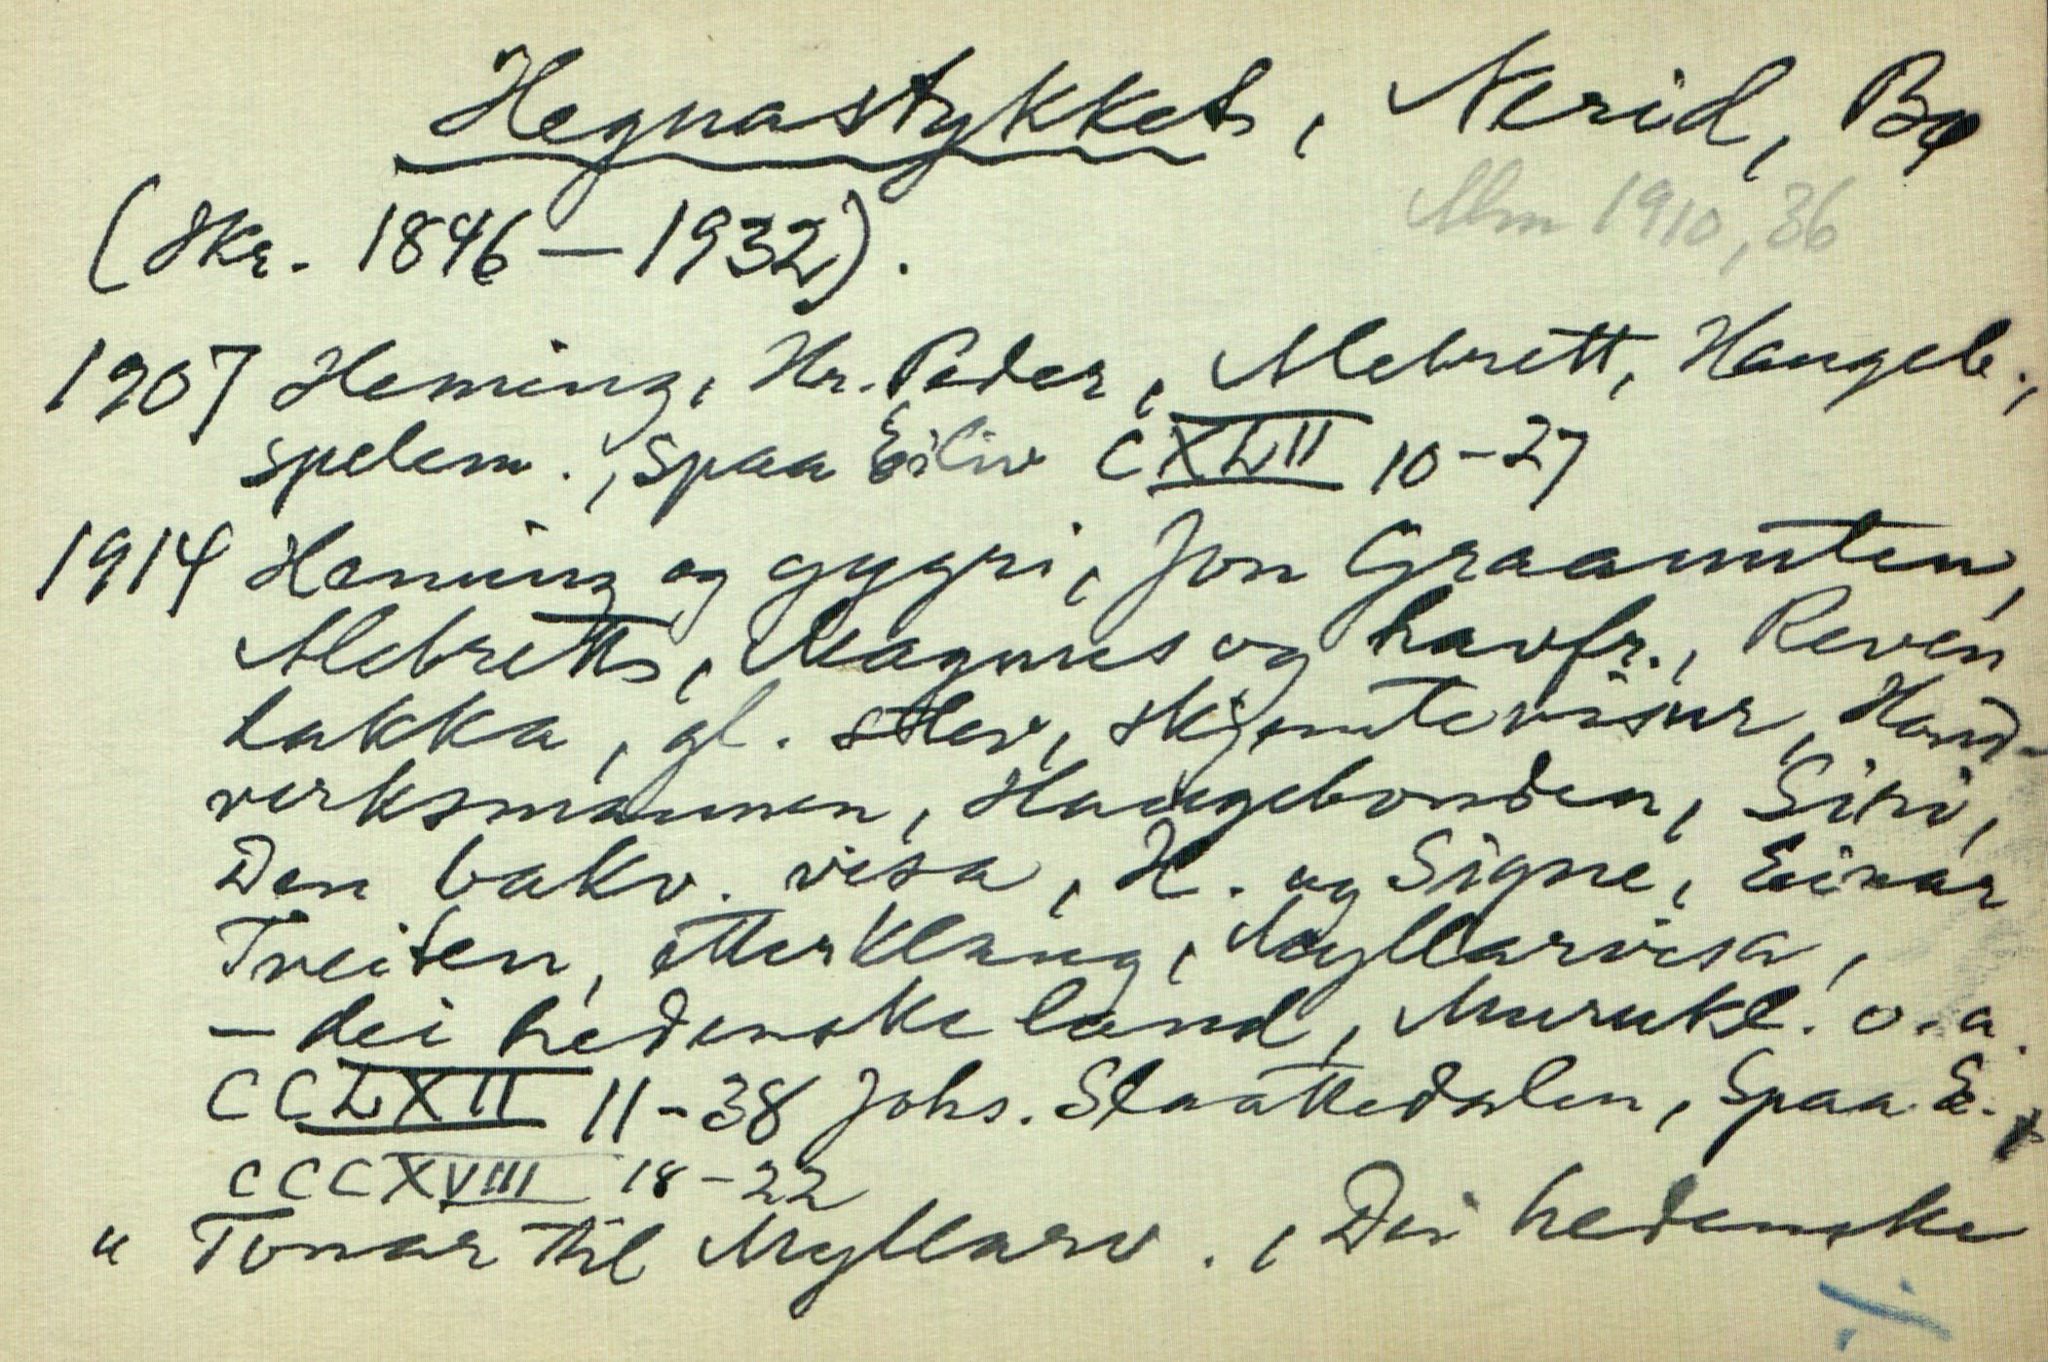 Hegnastykket, Nerid, Bø
(Skr. 1846–1932).
Mm 1910, 36
1907 Heming, Hr. Peder, Mebrett, Haugeb.,
spelem., Spaa Eiliv CXLII 10–27
1914 Heming og gygri, Jon Graamuten,
Alebretts, Magnus og havfr., Reven
lakka, gl. stev, skjemtevisur, Hand-
verksmannen, Haugebonden, Siri,
Den bakv. visa, H. og Signe, Einar
Tveiten, etterklang, Myllarvisa,
– dei hedenske land, Murukl. o.a.
CCLXII 11–38 Johs. Slaattedalen, Spaa E.,
CCCXVIII 18–22
" Tonar til Myllarv., Dei hedenske